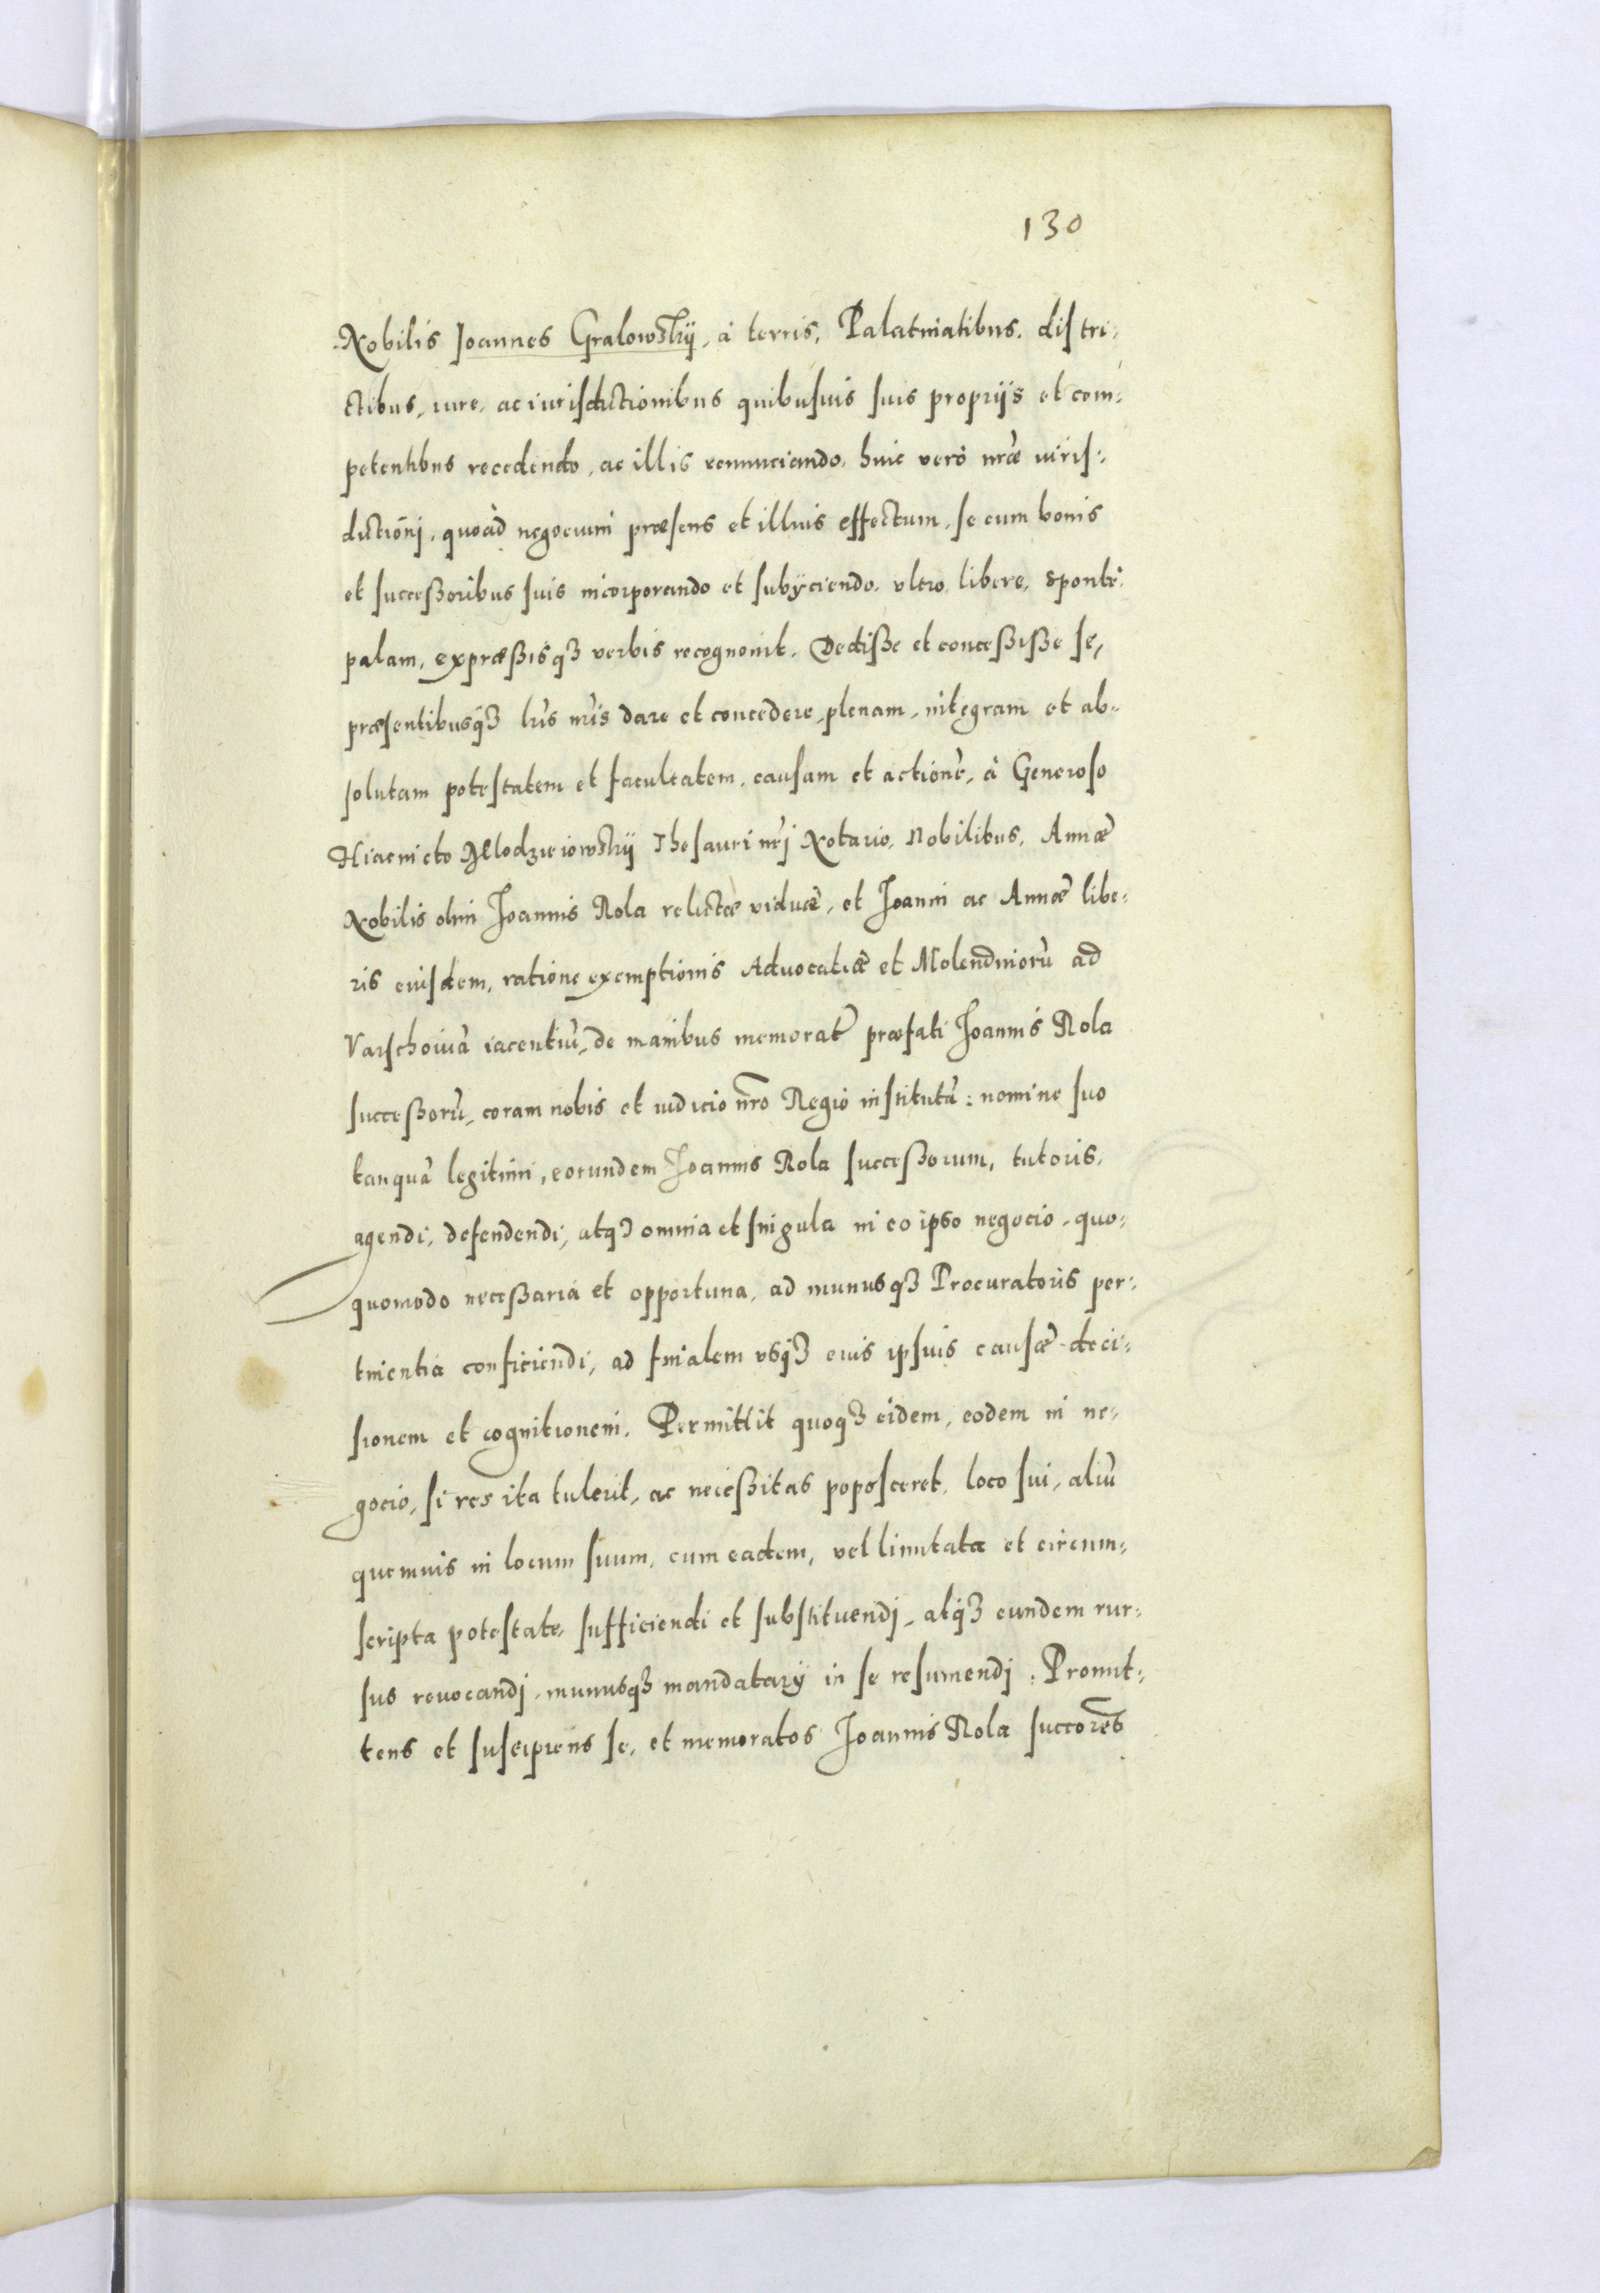 130
Nobilis Joannes Gralowskij, à terris, Palatinatibus, distri,
ctibus, iure, ac iurisdictionibus quibusuis suis proprijs et com,
petentibus recedendo, ac illis renunciando, huic verò nr̃æ iuris,
dictionj, quoad negocium præsens et illius effectum, se cum bonis
et successoribus suis incorporando et subijciendo, vltro, libere, sponte,
palam, expræssisqȝ verbis recognouit. Dedisse et concessisse se,
præsentibusqȝ lr̃is nr̃is dare et concedere, plenam, integram et ab,
solutam potestatem et facultatem, causam et actionẽ, à Generoso
Hiacincto Mlodzieiowskij Thesauri nr̃j Notario, Nobilibus, Annæ
Nobilis olim Joannis Rola relictæ viduæ, et Joanni ac Annæ libe,
ris eiusdem, ratione exemptionis Aduocatiæ et Molendinorũ ad
Varschouiã iacentiũ, de manibus memorat præfati Joannis Rola
successorũ, coram nobis et iudicio nr̃o Regio institutã: nomine suo
tanquã legitimi, eorundem Joannis Rola successorum, tutoris,
agendi, defendendi, atqȝ omnia et singula in eo ipso negocio, quo,
quomodo necessaria et opportuna, ad munusqȝ Procuratoris per,
tinentia conficiendi, ad finalem vsqȝ eius ipsius causæ deci,
sionem et cognitionem. Permittit quoqȝ eidem, eodem in ne,
gocio, si res ita tulerit, ac necessitas poposceret, loco sui, aliũ
quemuis in locum suum, cum eadem, vel limitata et circum,
scripta potestate, sufficiendi et substituendj, atqȝ eundem rur,
sus reuocandj, munusqȝ mandatarij in se resumendj: Promit,
tens et suscipiens se, et memoratos Joannis Rola succores̃